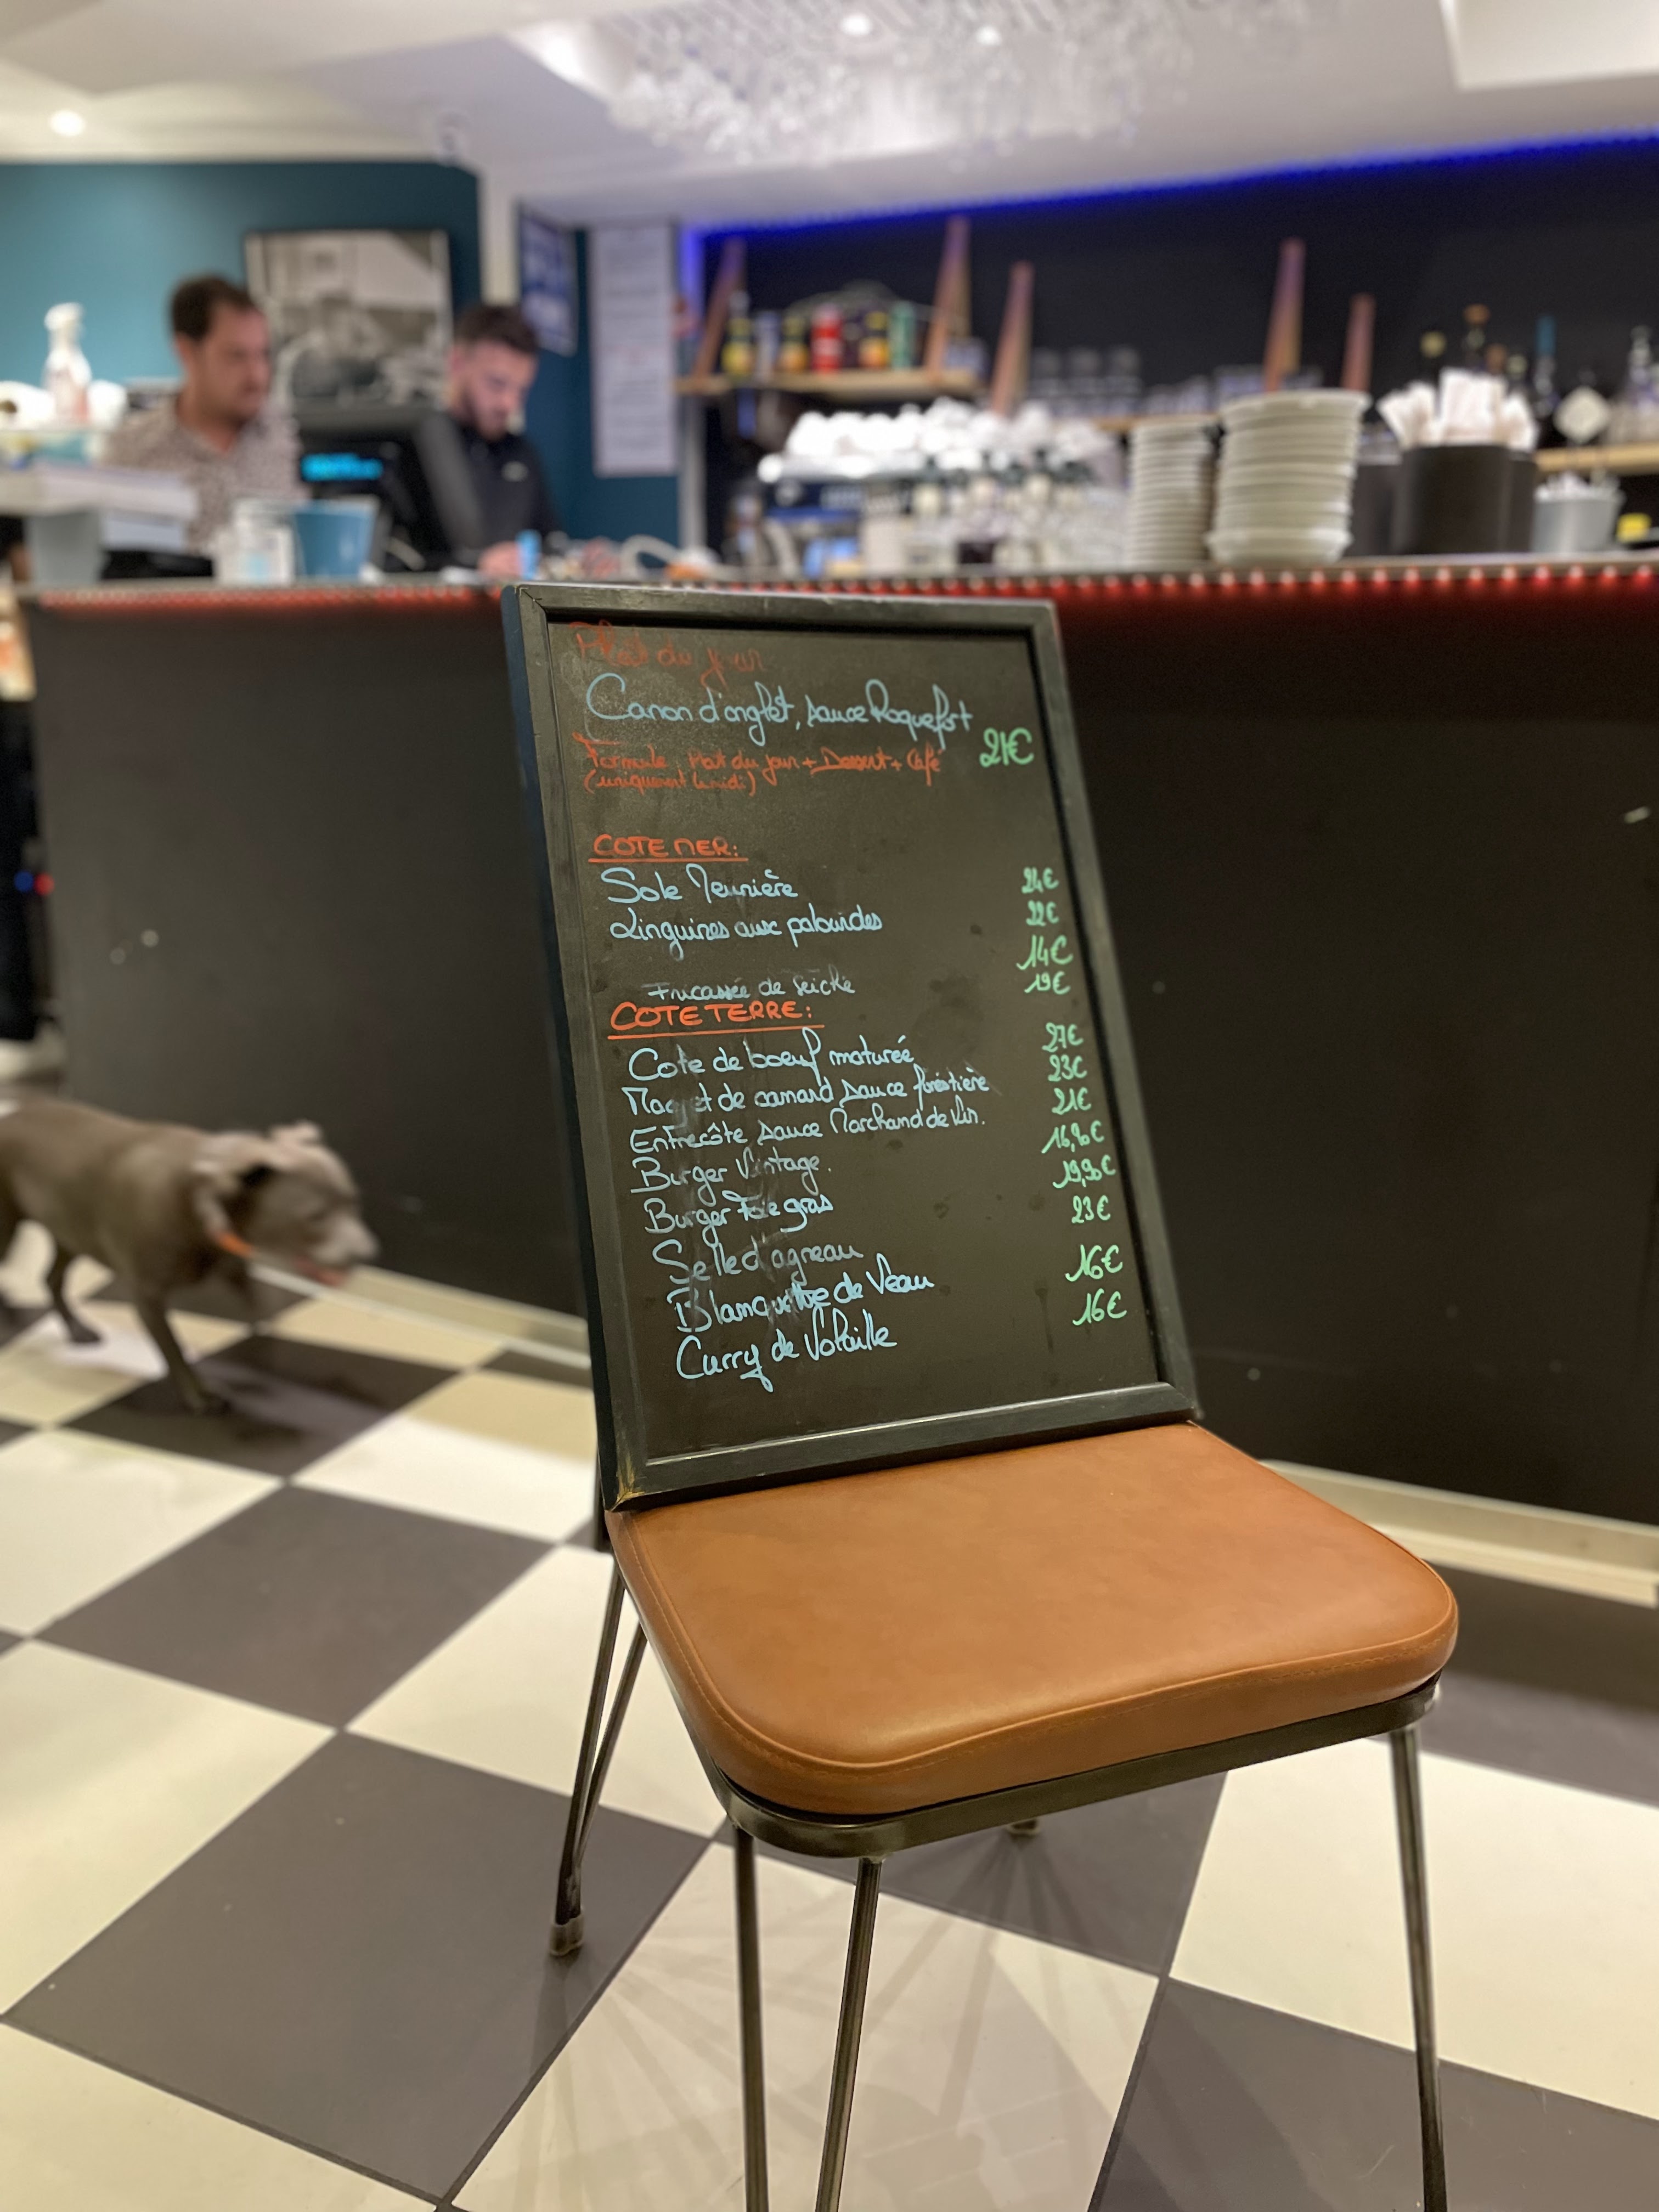 Plat du jour
Canon d'onglet, sauce Roquefort
21€
Formule Plat du jour + Dessert + Café
(uniquement le midi)
COTE MER:
Sole Meunière 24€
Linguines aux palourdes 22€
14€
Fricassée de Seiche 19€
COTE TERRE:
Cote de boeuf maturée 27€
Magret de canard sauce forestière 23€
Entrecôte sauce Marchand de Vin. 21€
Burger Vintage. 16,90€
Burger Foie gras 19,90€
Selle d'agneau 23€
Blanquette de Veau 16€
Curry de Volaille 16€